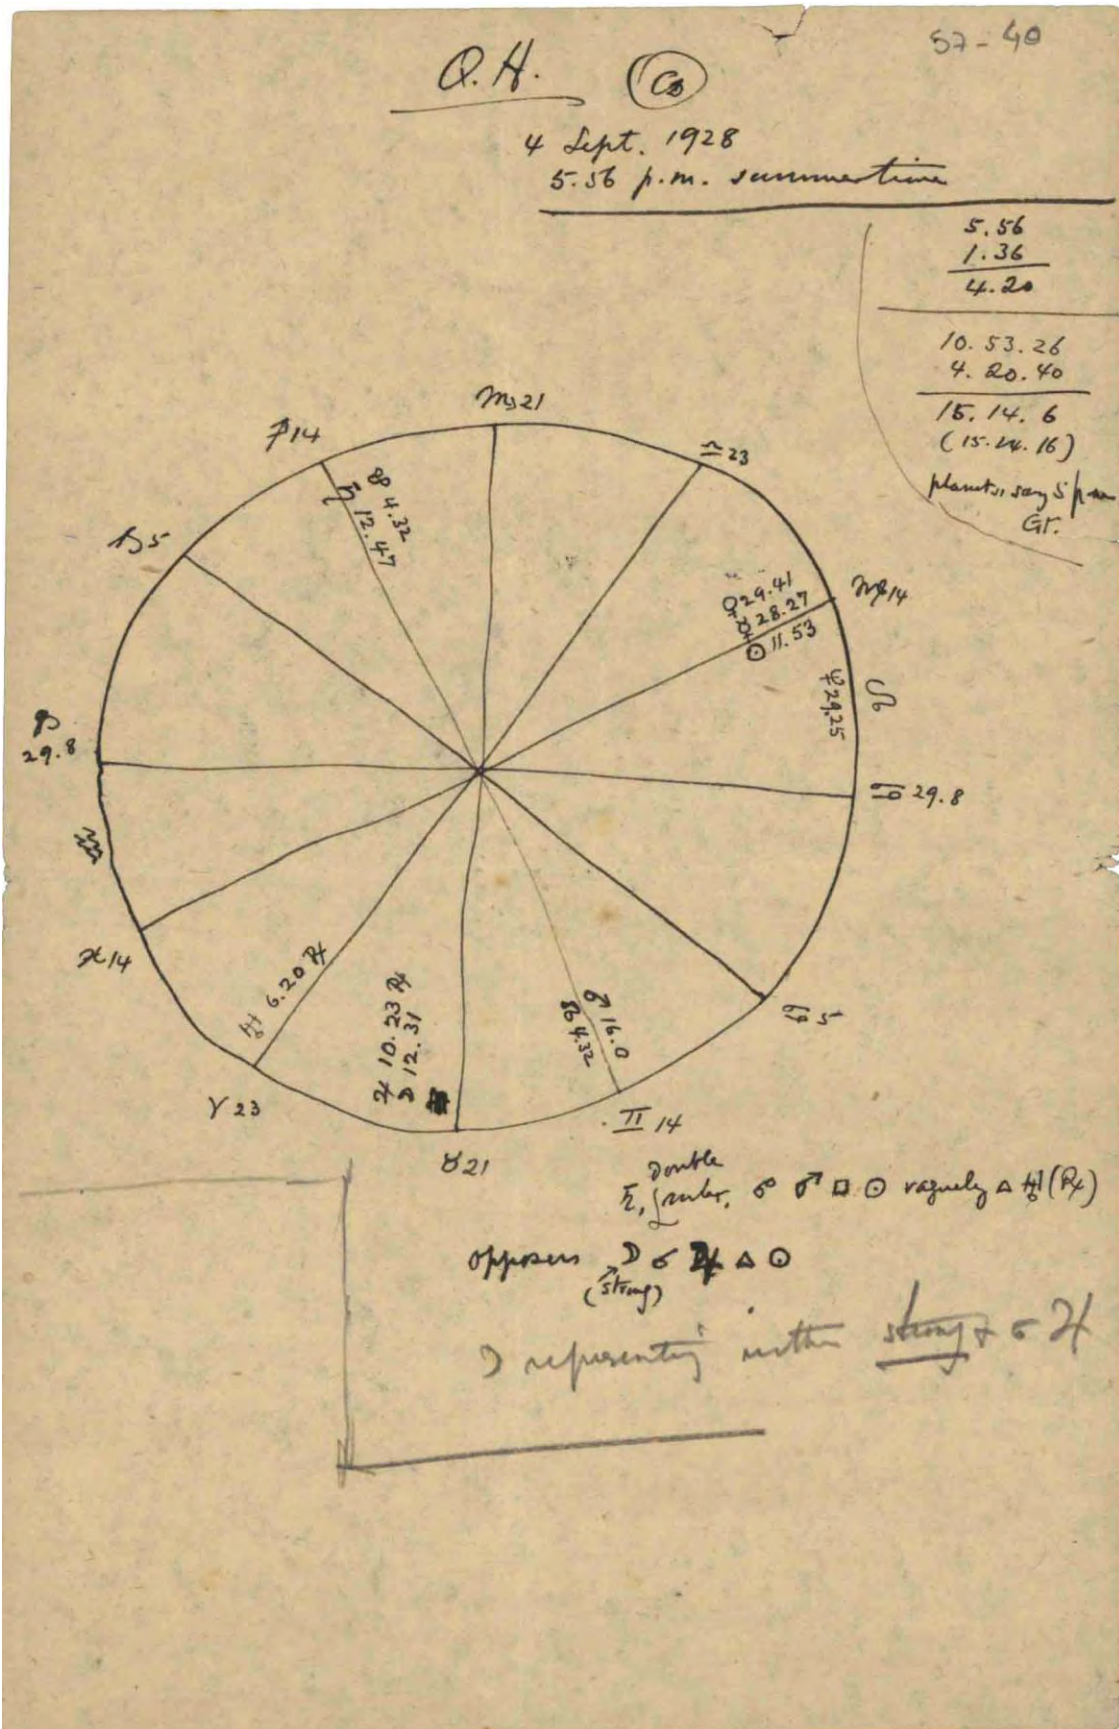 57-40
Q.H.
4 Sept. 1928
5.56 p.m. summer time
5.56
1.36
4.20
10.53.26
4.20.40
15.14.6
(15.14.16)
planets, say 5 p.m
Gr.
♏21
♐14
♎23
☋ 4.32
♄ 12.47
♑5
♀ 29.41
☿ 28.27
☉ 11.53
♍14
♌
♆ 29.25
♑
29.8
♋ 29.8
♒
♓14
♅ 6.20 ℞
♃ 10.23 ℞
☽ 12.31
♂ 16.0
☊ 4.32
♋ 5
♈ 23
♊ 14
♉21
Double
♄, ruler, ☍ ♂ □ ☉ vaguely △ ♅ (℞)
opposers ☽ ☌ ♃ △ ☉
(strong)
☽ representing strong & ☌ ♃